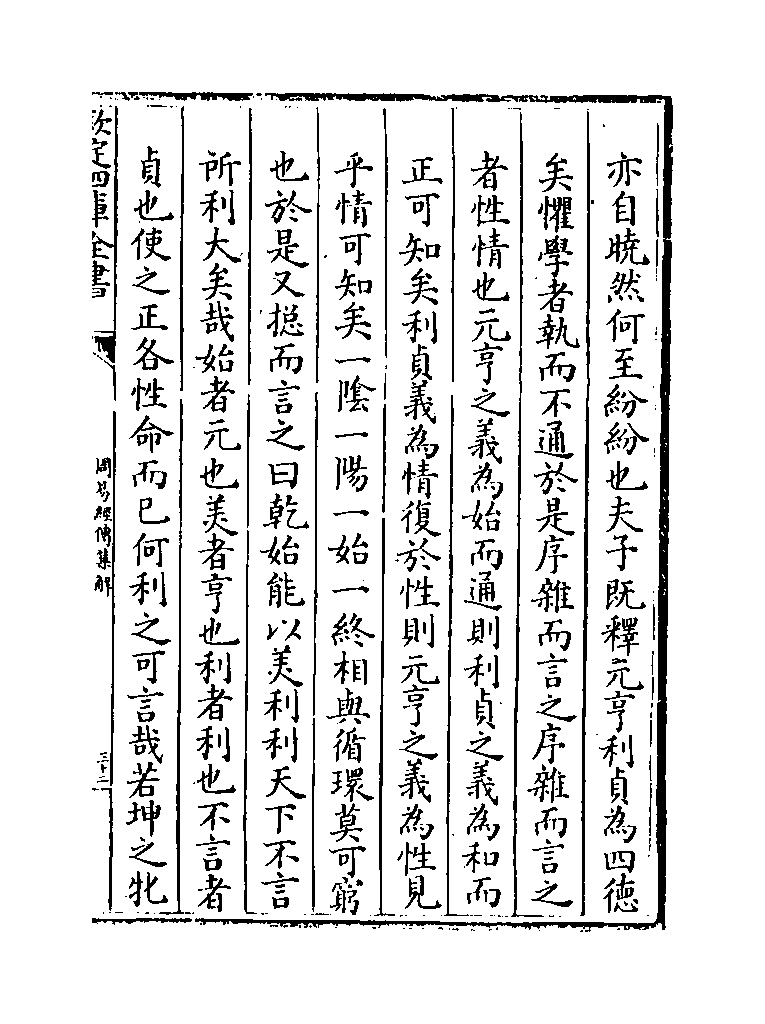 亦自曉然何至紛紛也夫子既釋元亨利貞為四徳
矣懼學者執而不通於是序雜而言之序雜而言之
者性情也元亨之義為始而通則利貞之義為和而
正可知矣利貞義為情復於性則元亨之義為性見
乎情可知矣一隂一陽一始一終相與循環莫可窮
也於是又揔而言之曰乾始能以羙利利天下不言
所利大矣哉始者元也羙者亨也利者利也不言者
貞也使之正各性命而已何利之可言哉若坤之牝
欽定四庫全書
周易經傳集解
三十二